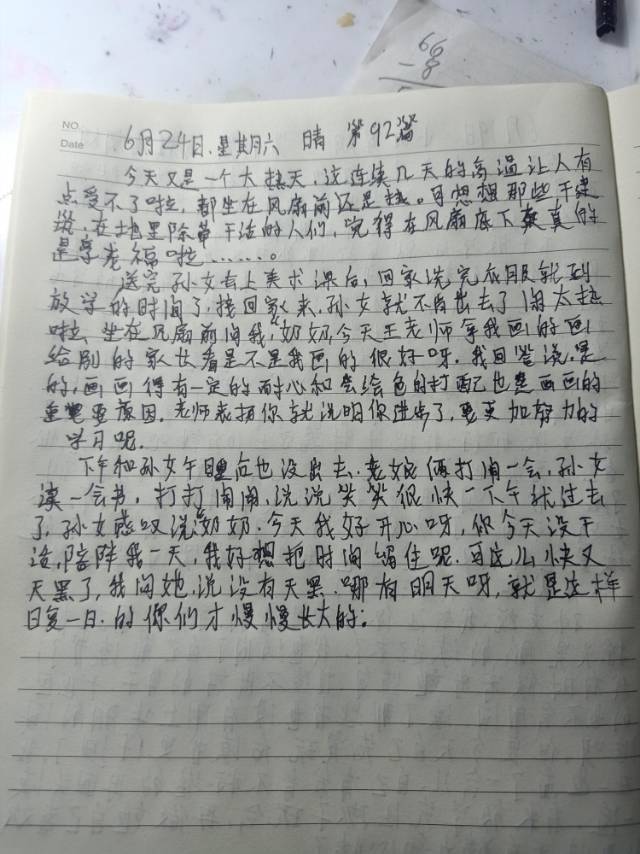 66
- 8
NO.
Date
6月24日.星期六 晴 第92篇
今天又是一个大热天,这连续几天的高温让人有
点受不了啦,都坐在风扇前还是热。可想想那些干建
筑,在地里除草干活的人们,觉得在风扇底下真的
是享老福啦……。
送完孙女去上美术课后,回家洗完衣服就到
放学的时间了,接回家来,孙女就不肯出去了闹太热
啦,坐在风扇前问我,"奶奶,今天王老师拿我画的画
给别的家长看是不是我画的很好呀.我回答说.是
的,画画得有一定的耐心和会绘色的打配也是画画的
重要原因.老师表扬你就说明你进步了,要更加努力的
学习呢.
下午和孙女午睡后也没出去.老娘俩打闹一会,孙女
读一会书,打打闹闹,说说笑笑很快一下午就过去
了,孙女感叹说"奶奶.今天我好开心呀,你今天没干
活,陪陪我一天,我好想把时间留住呢.可这么快又
天黑了,我问她,说没有天黑.哪有明天呀,就是这样
日复一日.的你们才慢慢长大的.